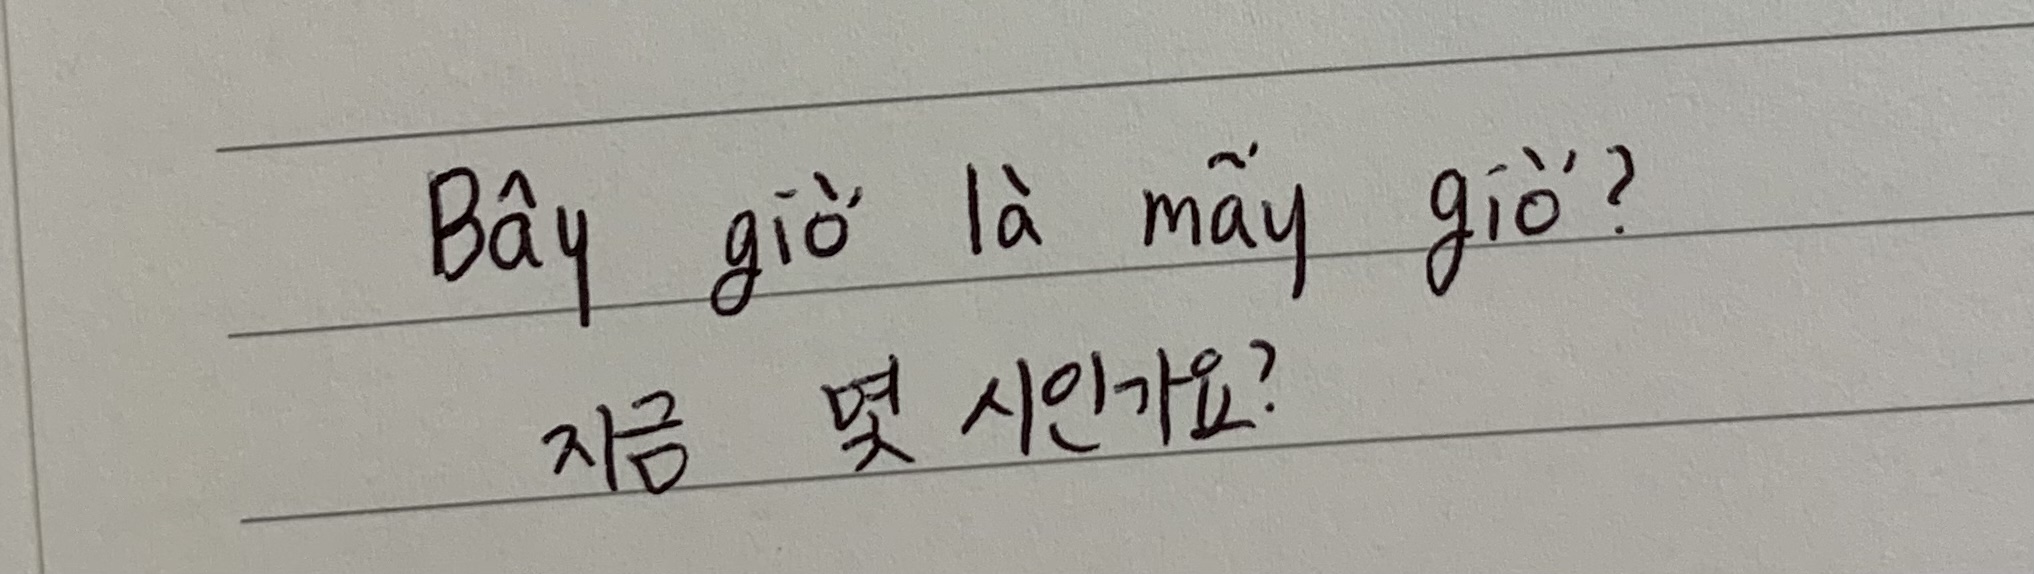 Bây giờ là mấy giờ?
지금 몇 시인가요?